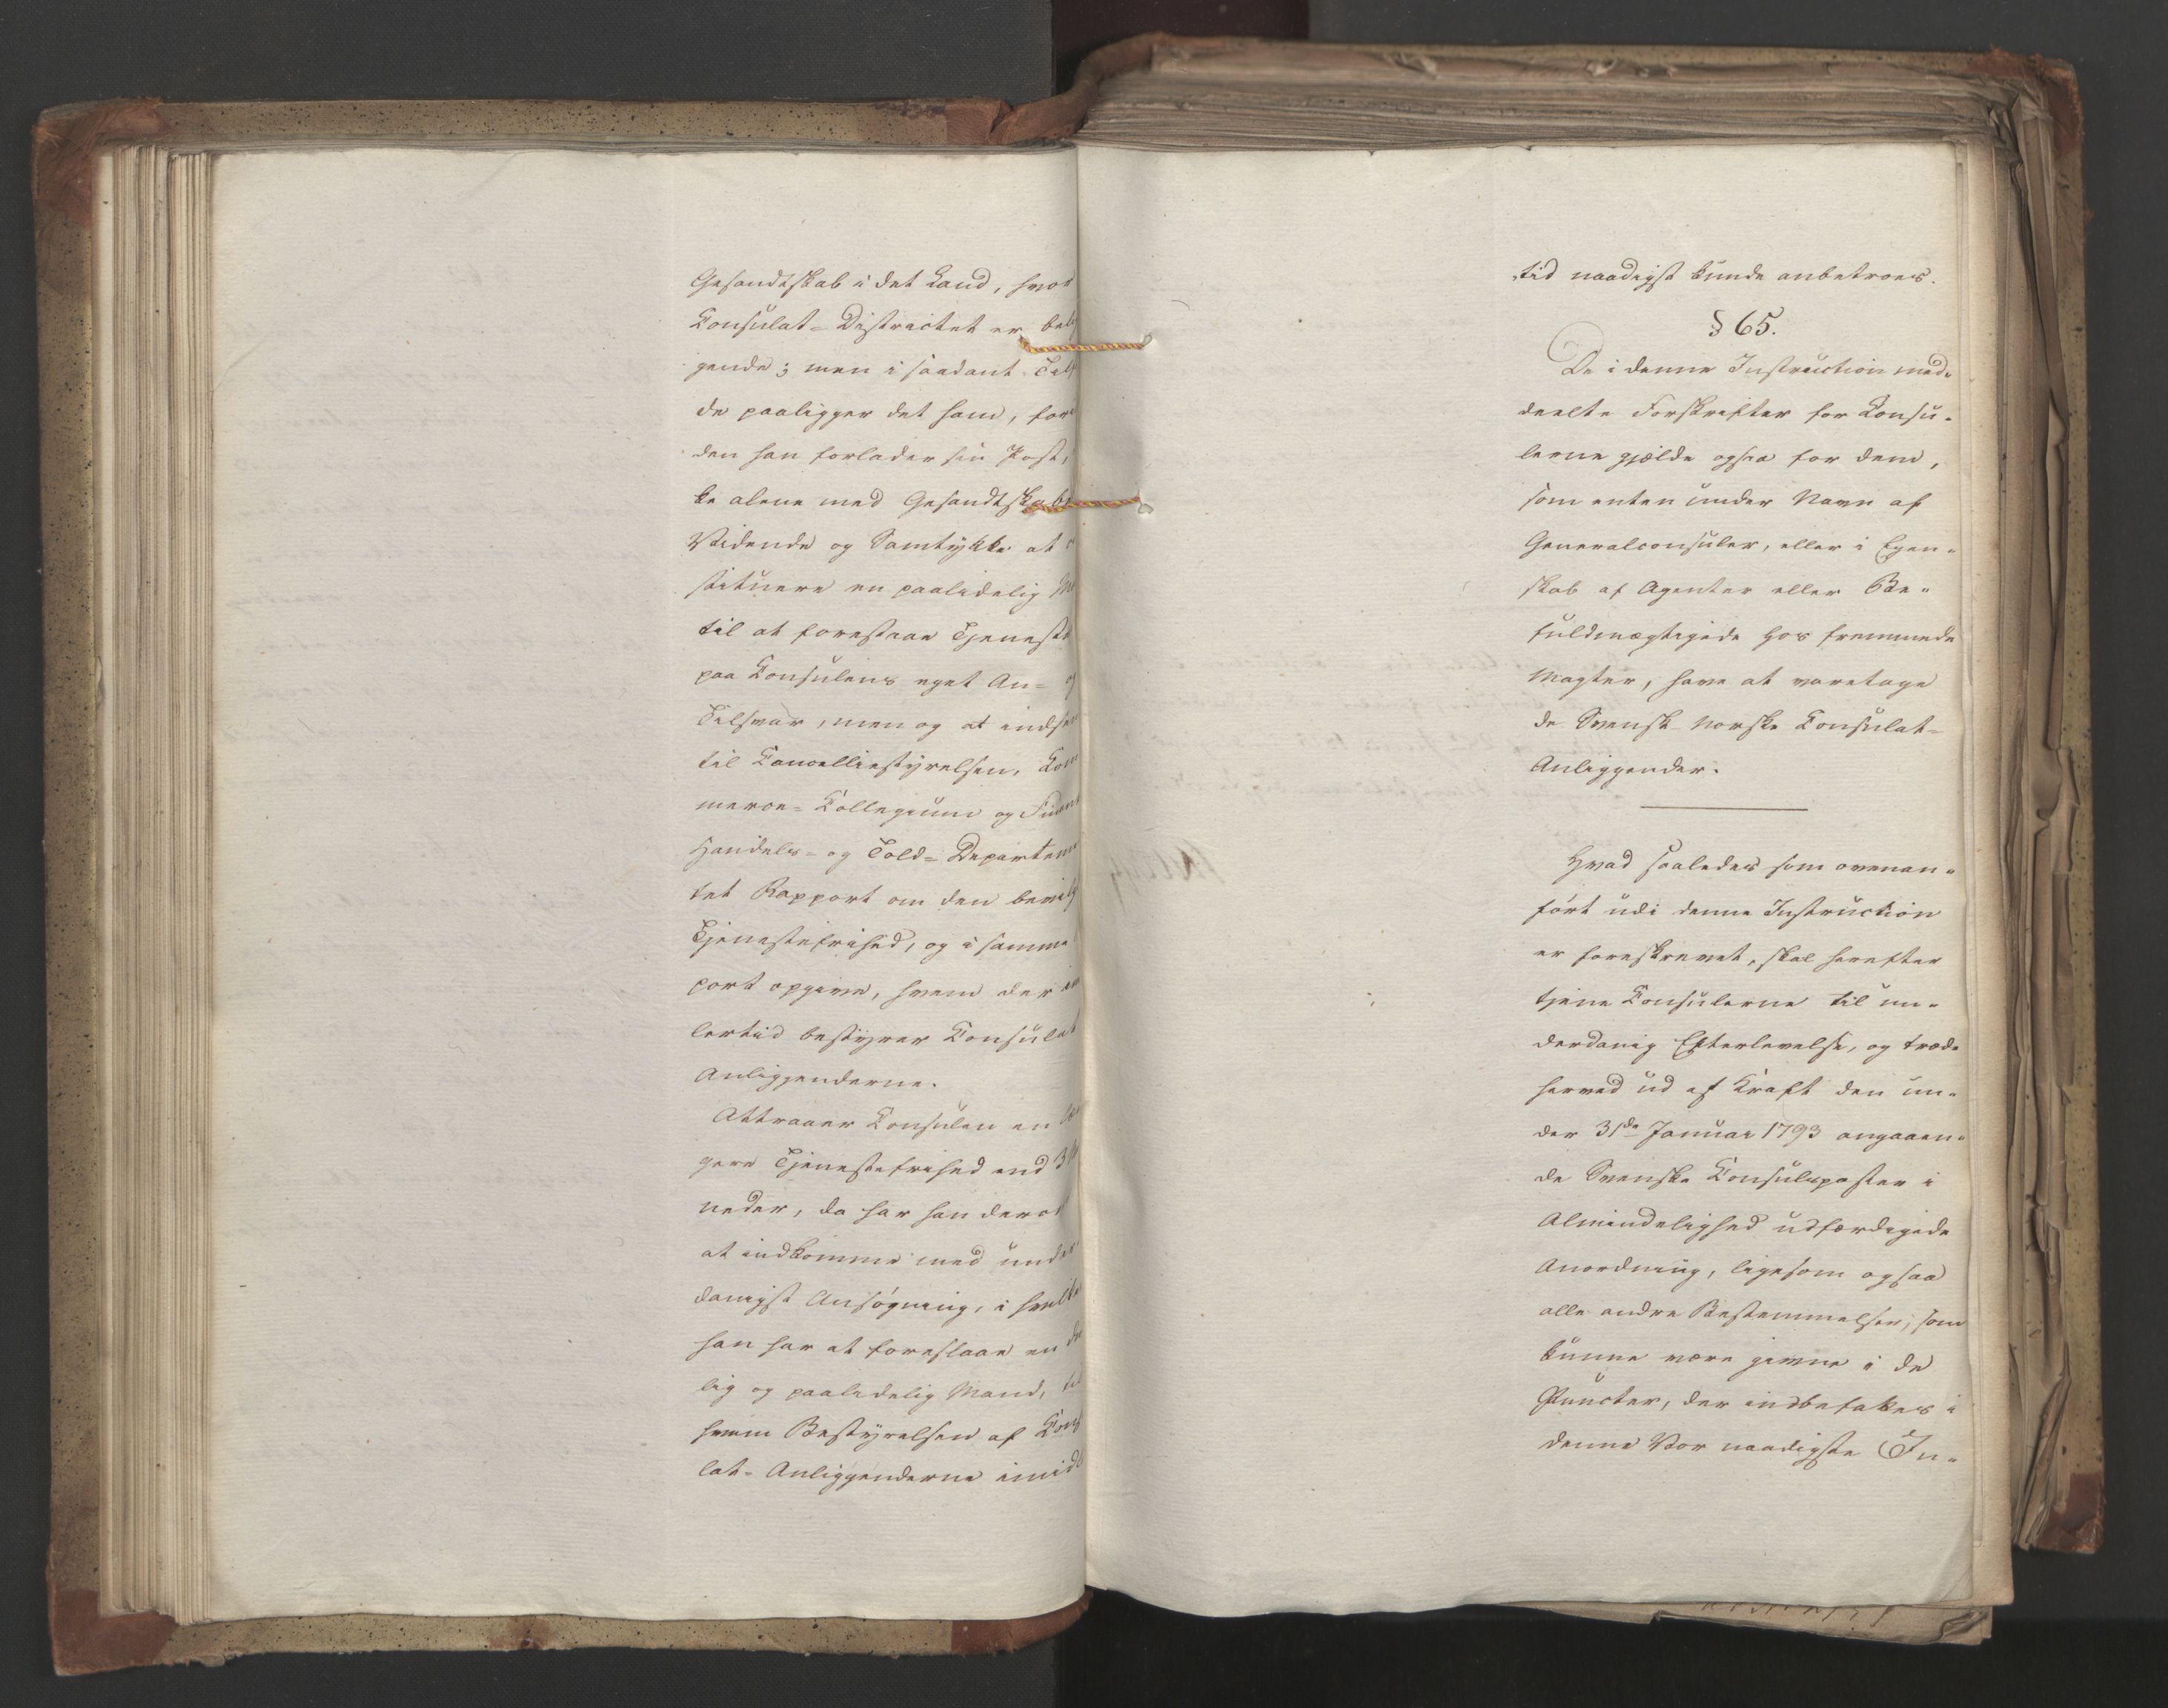 Gesandtskab i det Land, hvor
Consulat=Districtet er bel
gende; men i saadant Tilf
de paaligger det ham, for
den han forlader sin Post,
ke alene med Gesandtskabe
Vidende og Samtykke at
stituere en paalidelig
til at forestaae Tjenest
paa Consulens eget An= og
Tilsvar, men og at indse
til Cancelliestyrelsen, Kom
merce=Collegium og Finan
Handels= og Told=Departem
tet Rapport om den bevilg
Tjenestefrihed, og i samme
port opgive, hvem der im
lertid bestyrer Consulat
Anliggenderne.
Attraaer Consulen en læn
gere Tjenestefrihed end 3
neder, da har han derom
at indkomme med under
danigst Ansøgning, i hvilke
han har at foreslaae en
lig og paalidelig Mand, til
hvem Bestyrelsen af Cons
lat=Anliggenderne imid
tid naadigst kunde anbetroes.
§ 65.
De i denne Instruction med=
deelte Forskrifter for Consu=
lerne gjelde ogsaa for dem,
som enten under Navn af
Generalconsuler, eller i Egen=
skab af Agenter eller Be=
fuldmægtigede hos fremmede
Magter, have at varetage
de Svensk-Norske Consulat=
Anliggender.
Hvad saaledes som ovenan=
ført udi denne Instruction
er foreskrevet, skal herefter
tjene Consulerne til un=
derdanig Efterlevelse, og træde
herved ud af Kraft den un=
der 31de Januar 1793 angaaen=
de Svenske Consulsposter i
Almindelighed udfærdigede
Anordning, ligesom ogsaa
alle andre Bestemmelser, som
kunne være givne i de
Puncter, der indbefattes i
denne Vor naadigste In=